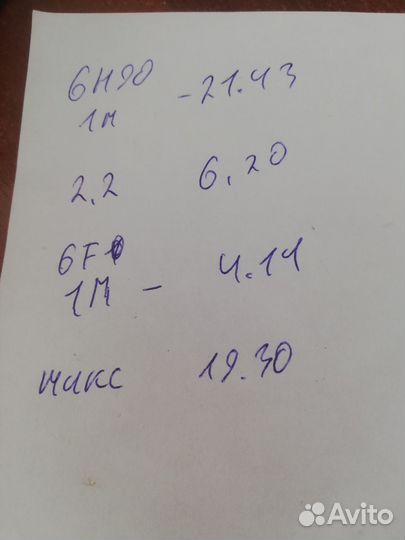 6H90
1м - 21.43
2,2 6,20
6F1
1М - 4.14
микс 19.30
Avito